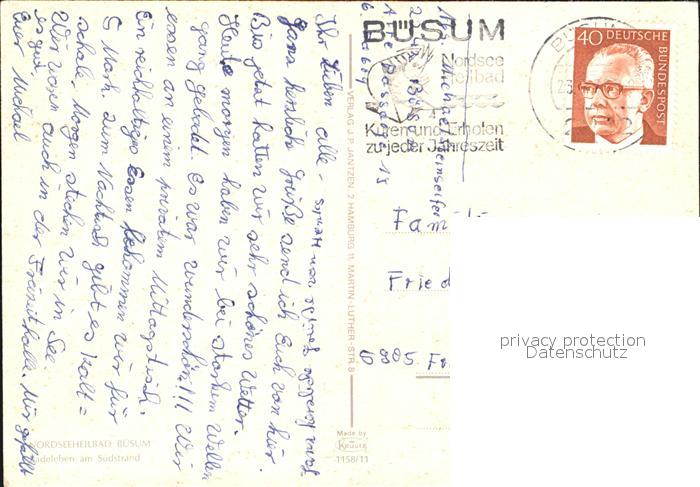 Ihr Lieben alle -
Ganz herzlich Grüße send ich Euch von hier.
Bis jetzt hatten wir sehr schönes Wetter.
Heute morgen haben wir bei starken Wellen
gang gebadet. Es war wunderschön!!! Wir
essen an einem privatem Mittagstisch.
Ein reichhaltiges Essen bekommen wir für
5 Mark. Zum Nachtisch gibt es Kalt=
schale. Morgen stechen wir in See.
Wir waren auch in der Freizeithalle. Mir gefällt
es gut.
Euer Michael
VERLAG J. P. JANTZEN, 2 HAMBURG 11, MARTIN-LUTHER-STR. 8
NORDSEEHEILBAD BÜSUM
Badeleben am Südstrand
Made by
Krüger
1158/11
BÜSUM
Nordsee
Heilbad
Kuren und Erholen
zu jeder Jahreszeit
BÜSUM
40 DEUTSCHE
BUNDESPOST
Michael
Famil
Fried
privacy protection
Datenschutz